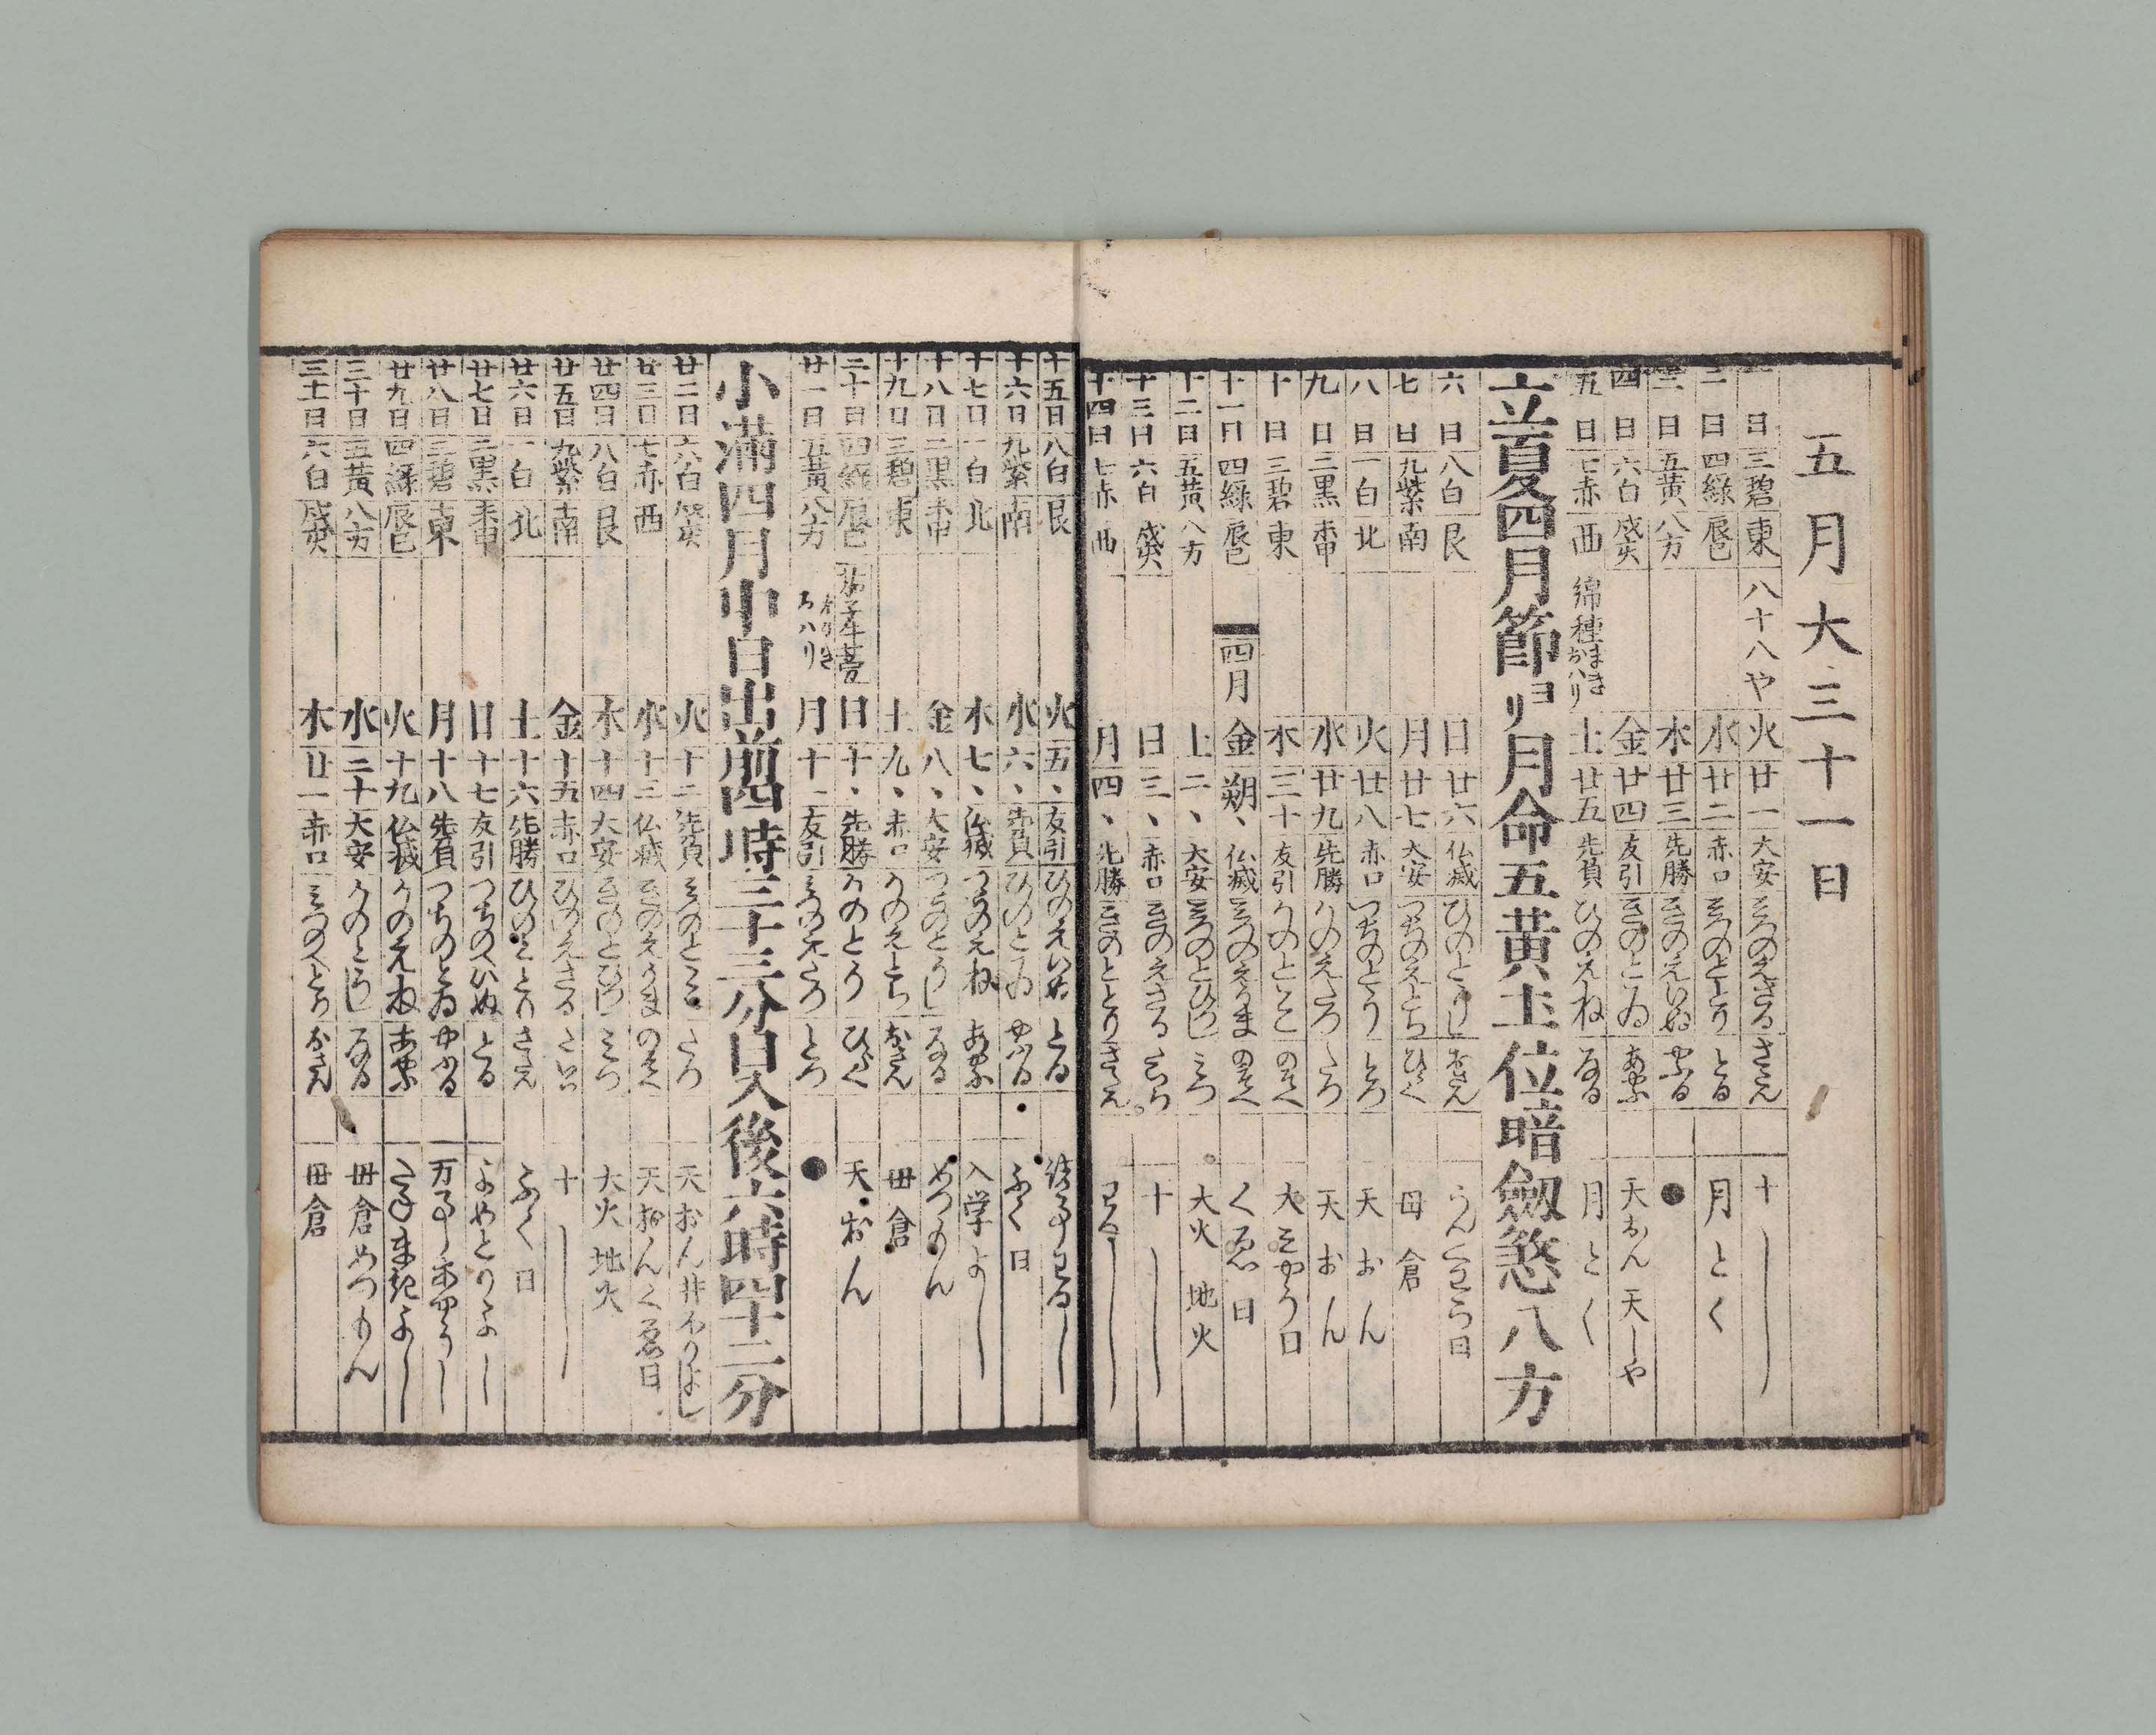 五月大三十一日
一日 三碧 東 八十八や 火 廿一 大安 みつのえさる さたん 十
二日 四緑 辰巳 水 廿二 赤口 みつのととり とる 月とく
三日 五黄 八方 木 廿三 先勝 きのえいぬ やふる ●
四日 六白 戌亥 金 廿四 友引 きのとゐ あやふ 天おん 天しや
五日 七赤 西 綿種まき おハり 土 廿五 先負 ひのえね なる 月とく
立夏四月節 ヨリ 月命五黄土位暗劔煞八方
六日 八白 艮 日 廿六 仏滅 ひのとうし おさん
七日 九紫 南 月 廿七 大安 つちのえとら ひらく 母倉
八日 一白 北 火 廿八 赤口 つちのとう とつ 天おん
九日 二黒 未申 水 廿九 先勝 かのえたつ たつ 天おん
十日 三碧 東 木 三十 友引 かのとみ のそく
十一日 四緑 辰巳 四月 金 朔、 仏滅 みつのえうま のそく くゑ日
十二日 五黄 八方 土 二、 大安 みつのとひつし みつ 大火 地火
十三日 六白 戌亥 日 三、 赤口 きのえさる たいら 十
十四日 七赤 西 月 四、 先勝 きのととり さたん
十五日 八白 艮 火 五、 友引 ひのえいぬ とる
十六日 九紫 南 水 六、 先負 ひのとゐ やふる ふく日
十七日 一白 北 木 七、 仏滅 つちのえね あやふ 入学よし
十八日 二黒 未申 金 八、 大安 つちのとうし なる めつもん
十九日 三碧 東 土 九、 赤口 かのえとら おさん 母倉
二十日 四緑 辰巳 茄子牛蒡 日 十、 先勝 かのとう ひらく 天おん
廿一日 五黄 八方 まきおハり 月 十一 友引 みつのえたつ とつ ●
小満四月中日出前四時三十三分日入後六時四十二分
廿二日 六白 戌亥 火 十二 先負 みつのとみ たつ 天おん井ほりよし
廿三日 七赤 西 水 十三 仏滅 きのえうま のそく 天おんくゑ日
廿四日 八白 艮 木 十四 大安 きのとひつし みつ 大火 地火
廿五日 九紫 南 金 十五 赤口 ひのえさる たいら 十
廿六日 一白 北 土 十六 先勝 ひのととり さたん ふく日
廿七日 二黒 未申 日 十七 友引 つちのえいぬ とる よめとりよし
廿八日 三碧 東 月 十八 先負 つちのとゐ やふる
廿九日 四緑 辰巳 火 十九 仏滅 かのえね あやふ たねまきよし
三十日 五黄 八方 水 二十 大安 かのとうし なる 母倉めつもん
三十一日 六白 戌亥 木 廿一 赤口 みつのえとら おさん 母倉